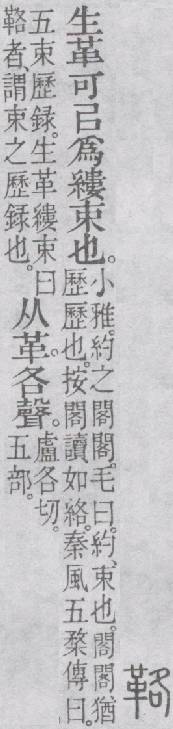 𩊚
生革可㠯爲縷束也。
小雅。約之閣閣。毛曰。約、束也。閣閣猶
歷歷也。按閣讀如絡。秦風五楘傳曰。
五束歷録。生革縷束曰
𩊚者、謂束之歷録也。
从革各聲。
盧各切。
五部。